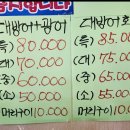 대방어+광어
(특) 80.000
(대) 70.000
(중) 60.000
(소) 50.000
머리구이 10.000
대방어회
(특) 85.
(대) 75.0
(중) 65.0
(소) 55.0
머리구이 10